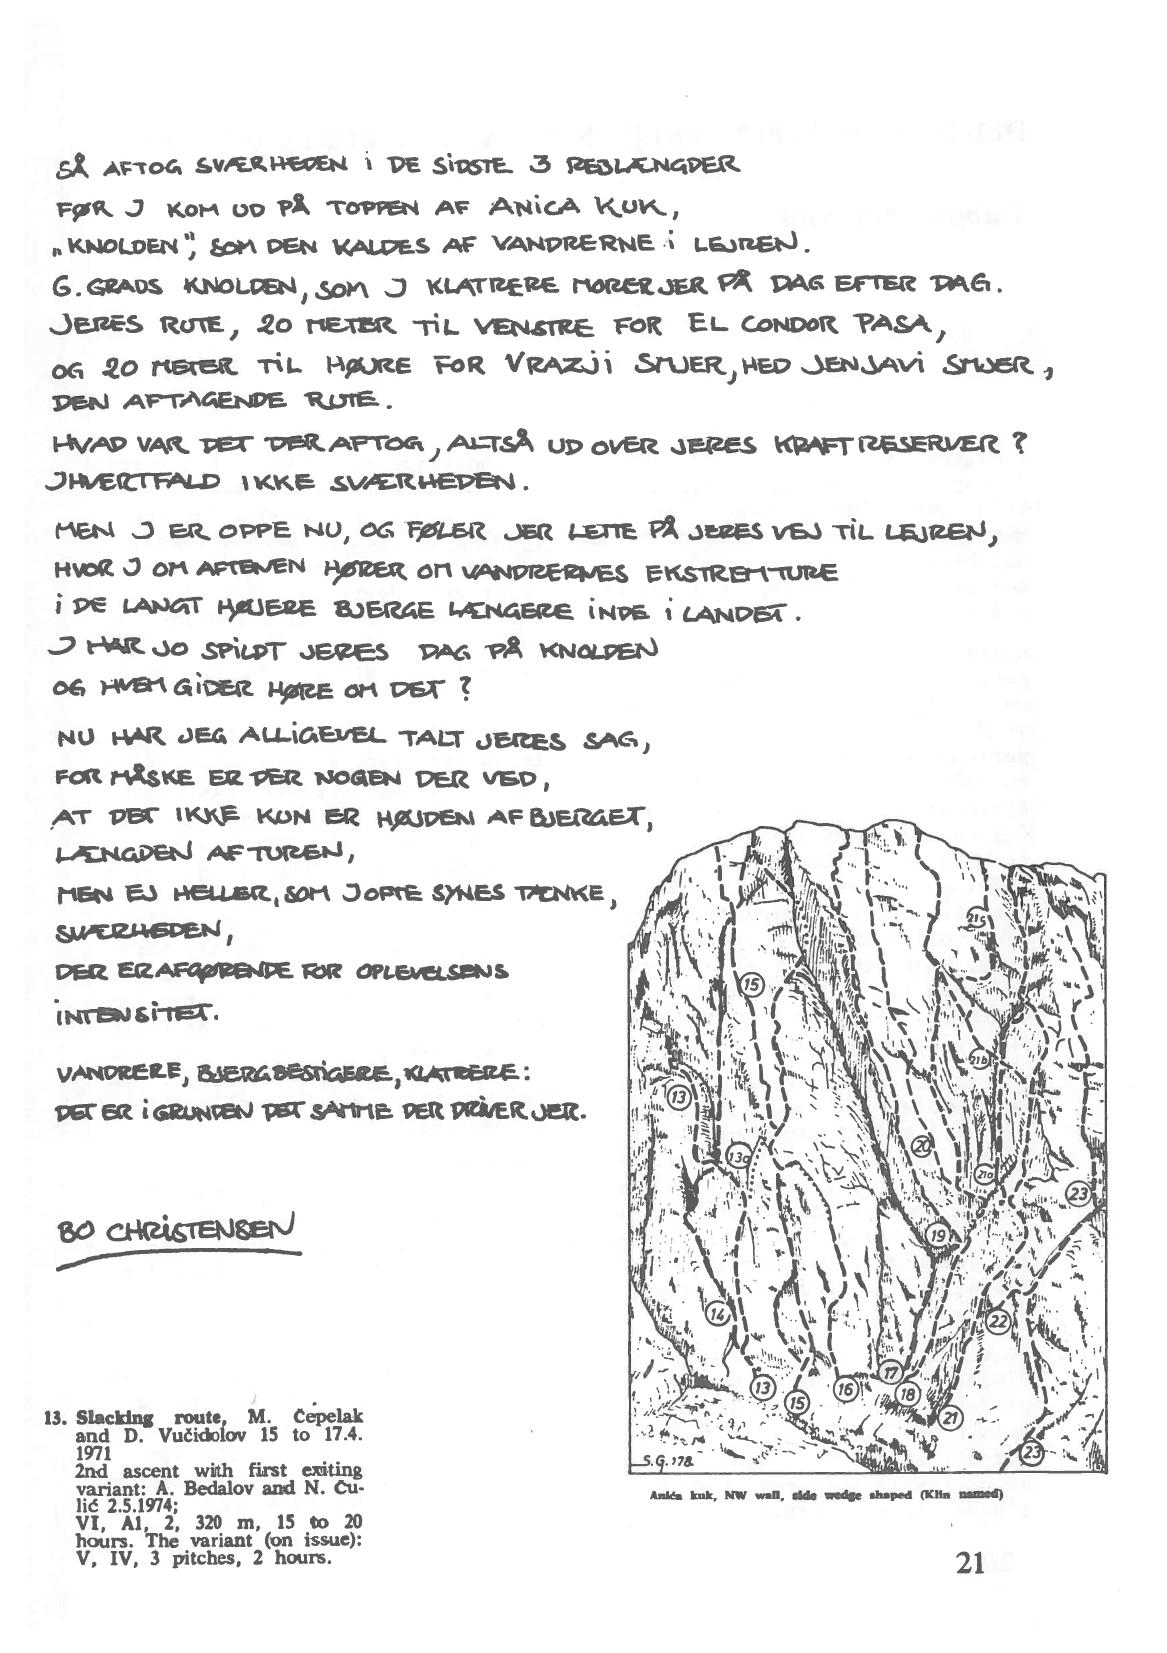 SÅ AFTOG SVÆRHEDEN i DE SiDSTE 3 REBLÆNGDER
FØR J KOM UD PÅ TOPPEN AF ANiCA KUK,
„KNOLDEN", SOM DEN KALDES AF VANDRERNE i LEJREN.
6. GRADS KNOLDEN, SOM J KLATRERE MORER JER PÅ DAG EFTER DAG.
JERES RUTE, 20 METER TiL VENSTRE FOR EL CONDOR PASA,
OG 20 METER TiL HØJRE FOR VRAZJi SMJER, HED JENJAVi SMJER,
DEN AFTAGENDE RUTE.
HVAD VAR DET DER AFTOG, ALTSÅ UD OVER JERES KRAFTRESERVER?
JHVERTFALD IKKE SVÆRHEDEN.
MEN J ER OPPE NU, OG FØLER JER LETTE PÅ JERES VEJ TiL LEJREN,
HVOR J OM AFTENEN HØRER OM VANDRERNES EKSTREMTURE
i DE LANGT HØJERE BJERGE LÆNGERE iNDE i LANDET.
J HAR JO SPiLDT JERES DAG PÅ KNOLDEN
OG HVEM GiDER HØRE OM DET?
NU HAR JEG ALLiGEVEL TALT JERES SAG,
FOR MÅSKE ER DER NOGEN DER VED,
AT DET IKKE KUN ER HØJDEN AF BJERGET,
LÆNGDEN AF TUREN,
MEN EJ HELLER, SOM J OFTE SYNES TÆNKE,
SVÆRHEDEN,
DER ER AFGØRENDE FOR OPLEVELSENS
iNTENSiTET.
VANDRERE, BJERGBESTiGERE, KLATRERE:
DET ER i GRUNDEN DET SAMME DER DRiVER JER.
BO CHRiSTENSEN
21c
15
21b
13
13a
20
21a
23
19
14
22
13
15
16
17
18
21
23
S.G. 178.
Anića kuk, NW wall, side wedge shaped (Klin named)
13. Slacking route, M. Čepelak
and D. Vučidolov 15 to 17.4.
1971
2nd ascent with first exiting
variant: A. Bedalov and N. Ču-
lić 2.5.1974;
VI, A1, 2, 320 m, 15 to 20
hours. The variant (on issue):
V, IV, 3 pitches, 2 hours.
21